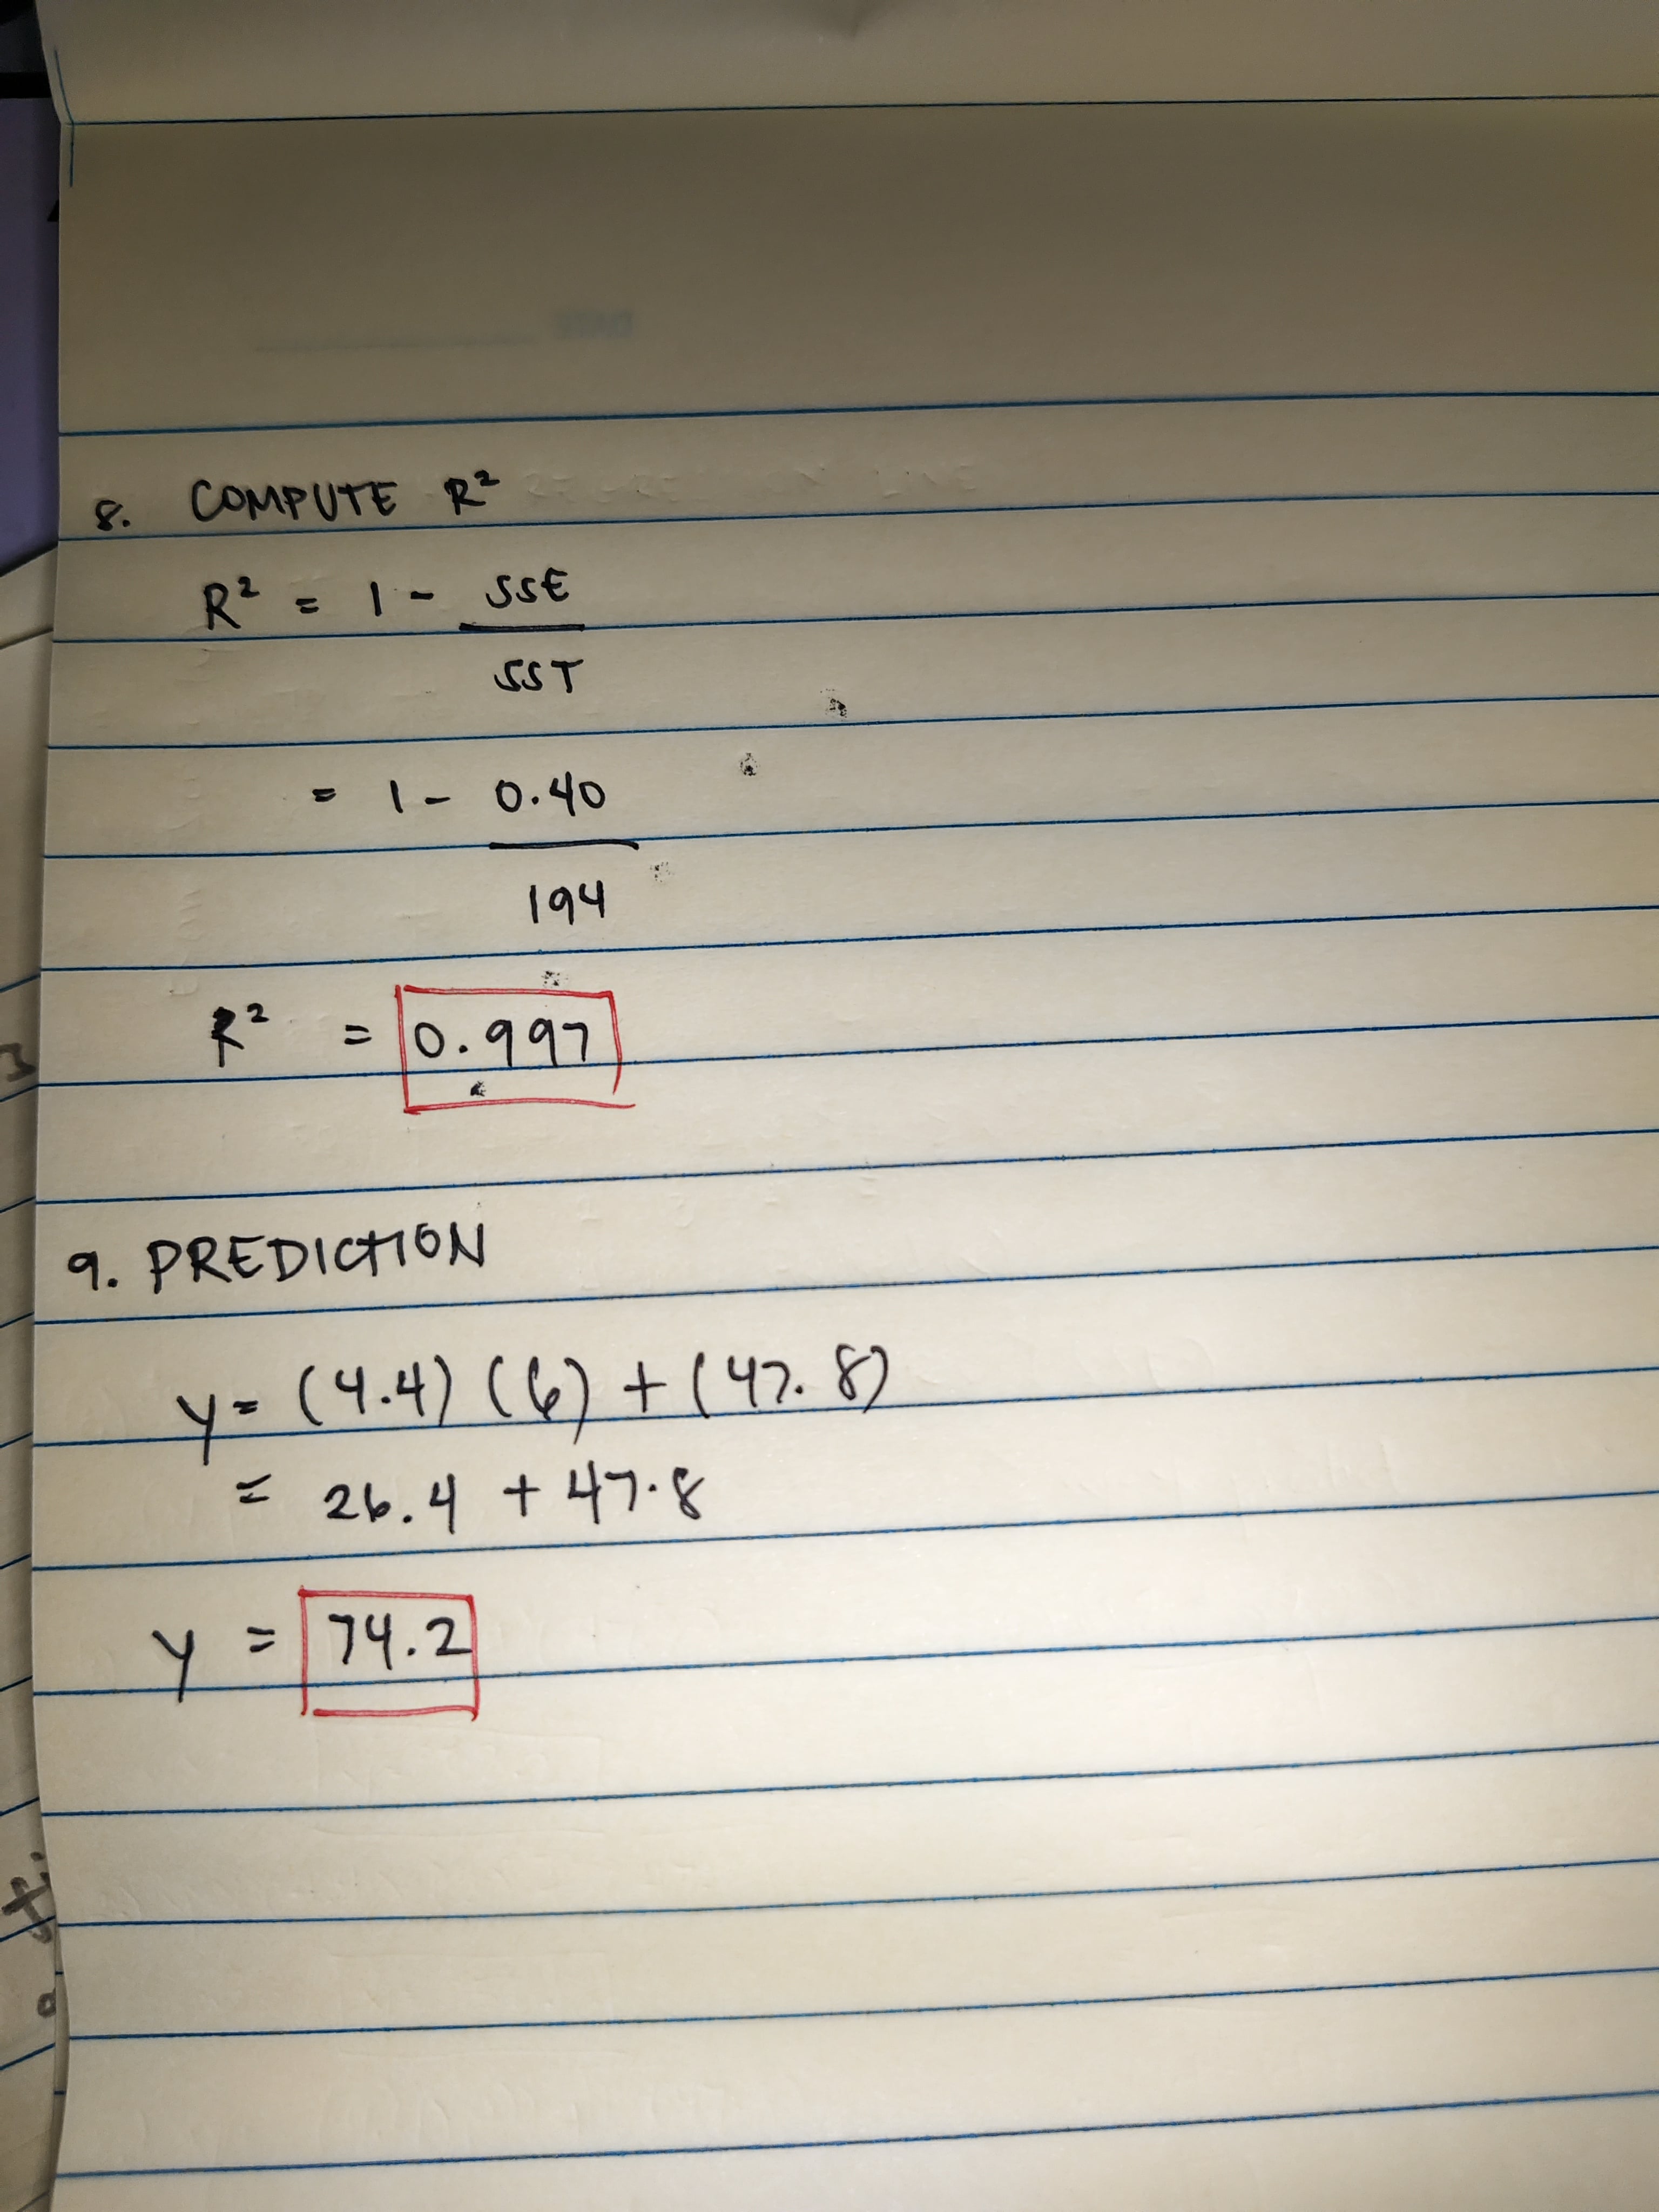 8. COMPUTE R²
R² = 1 - SSE
SST
= 1 - 0.40
194
R² = 0.997
9. PREDICTION
y = (4.4) (6) + (47.8)
= 26.4 + 47.8
y = 74.2